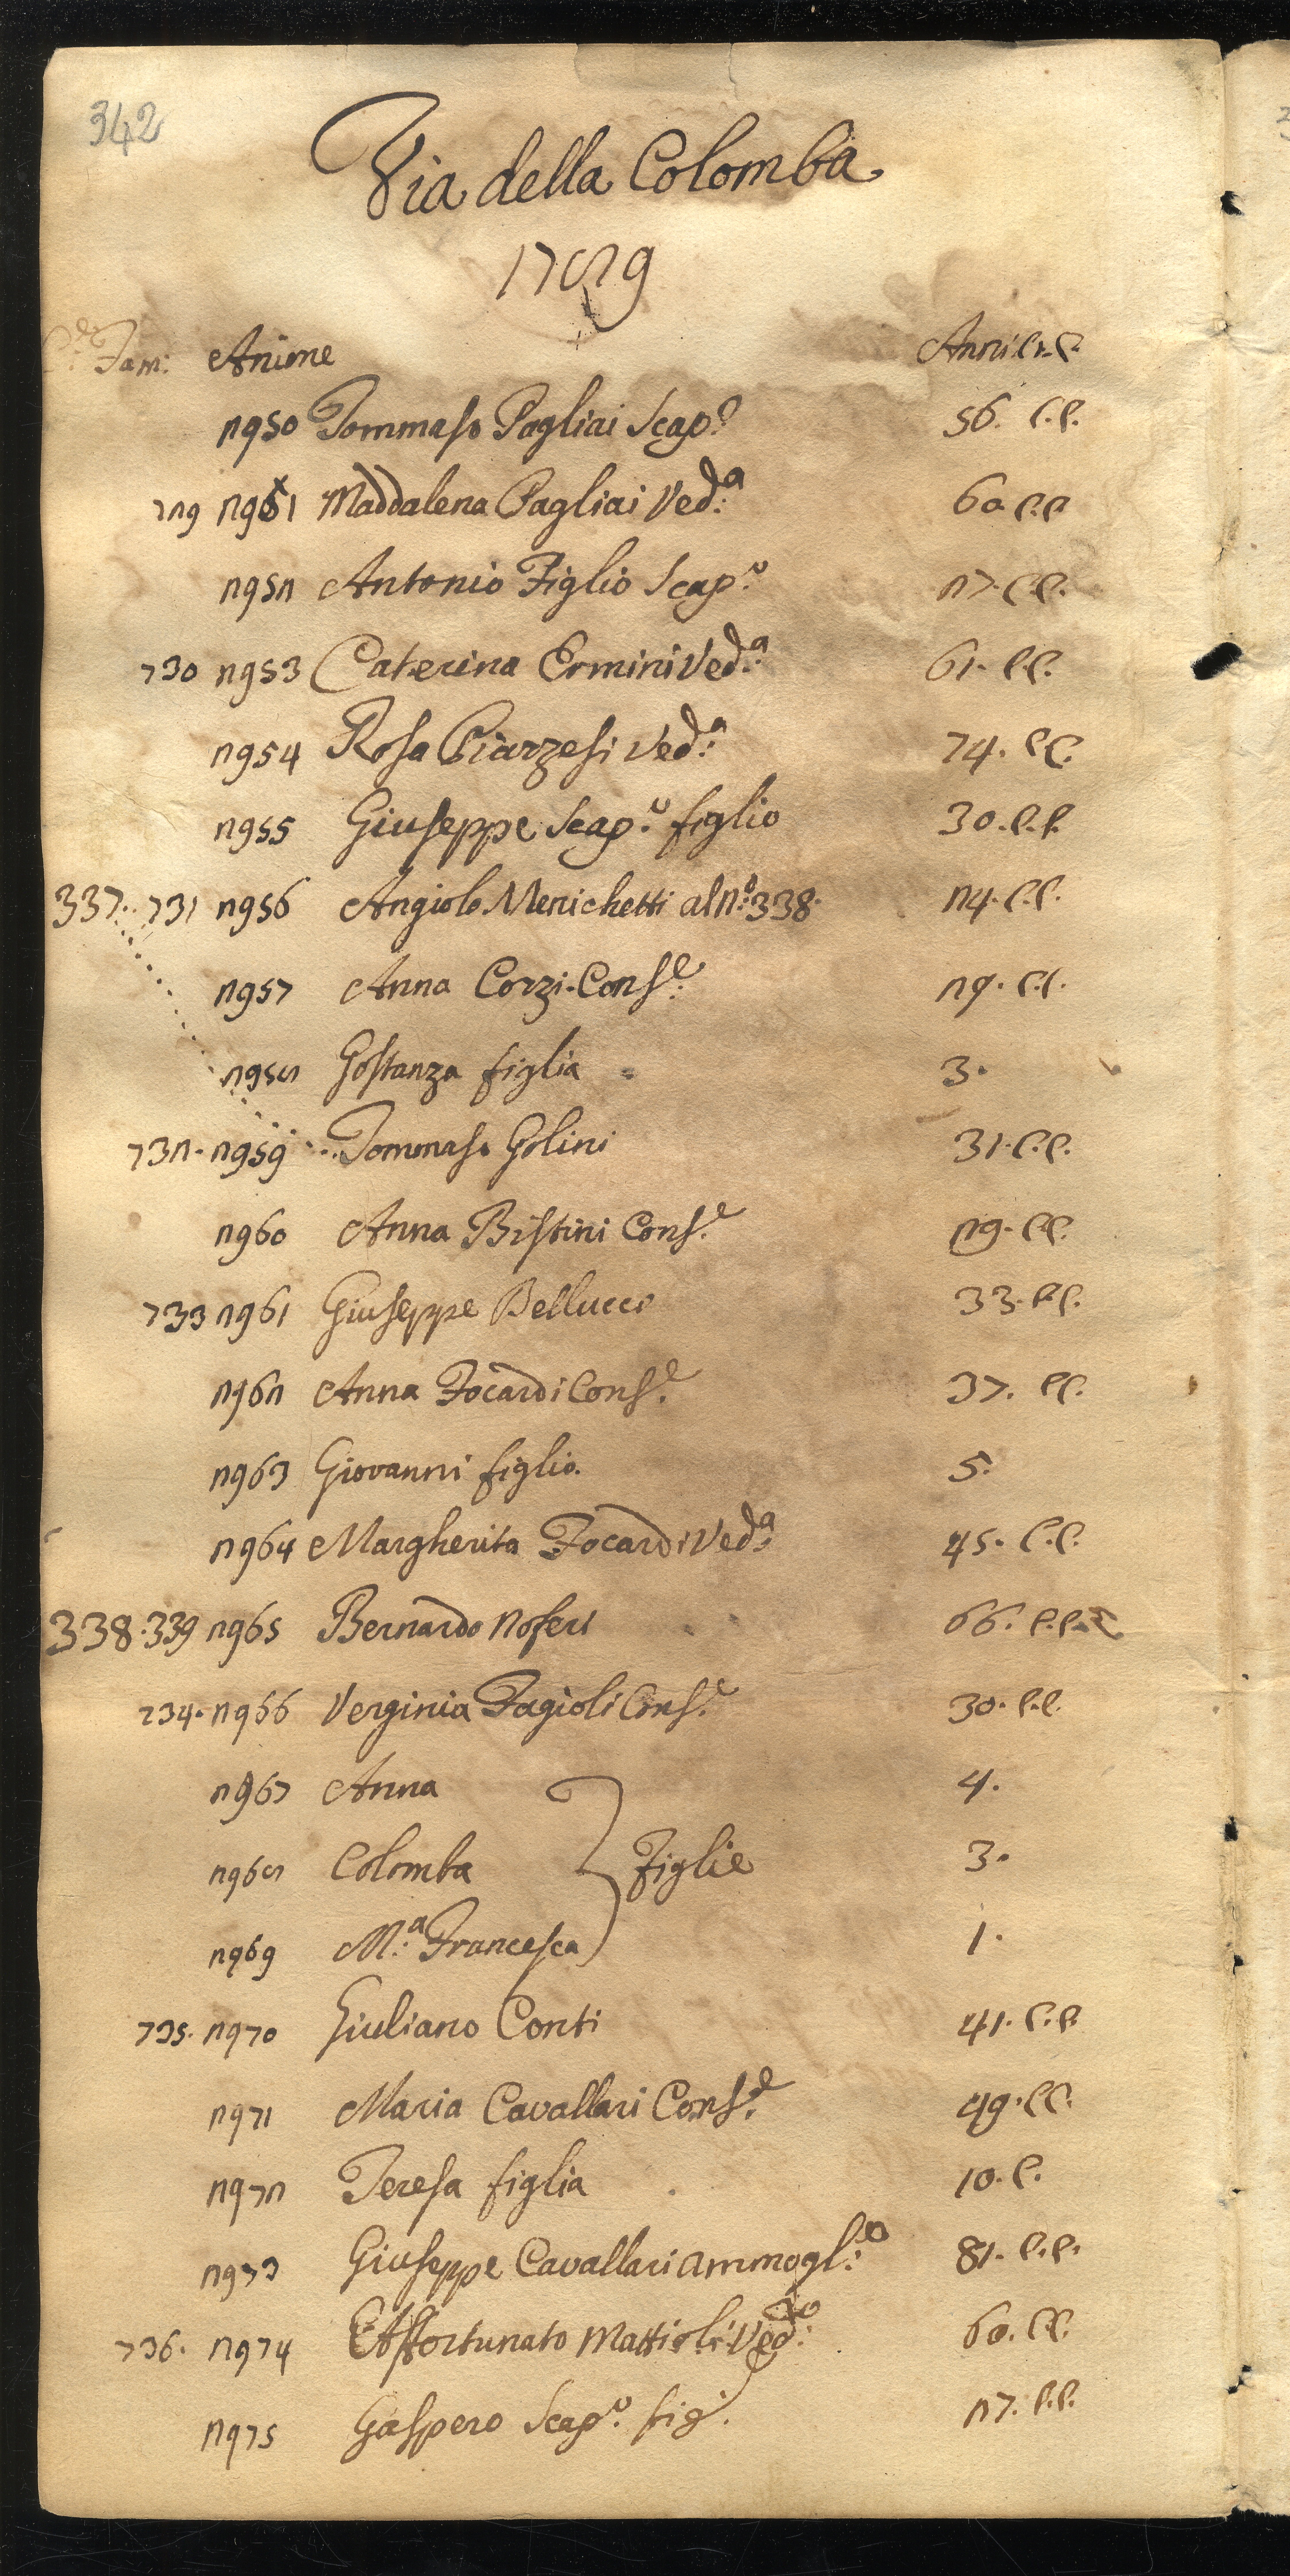 342
Via della Colomba
1789
C.e Fam: Anime Anni C. e C.
2950 Tommaso Pagliai Scap.o 56. C.C.
729 2951 Maddalena Pagliai Ved.a 60. C.C.
2952 Antonio Figlio Scap.o 27. C.C.
730 2953 Caterina Ermini Ved.a 61. C.C.
2954 Rosa Piarzesi Ved.a 74. C.C.
2955 Giuseppe Scap.o figlio 30. C.C.
337. 731 2956 Angiolo Menichetti al n.o 338. 24. C.C.
2957 Anna Corzi Cons.e 29. C.C.
2958 Gostanza figlia 3.
732. 2959 Tommaso Golini 31. C.C.
2960 Anna Bistini Cons.e 29. C.C.
733 2961 Giuseppe Bellucci 33. C.C.
2962 Anna Focardi Cons.e 37. C.C.
2963 Giovanni figlio. 5.
2964 Margherita Focardi Ved.a 45. C.C.
338. 339 2965 Bernardo Noferi 66. C.C.
734. 2966 Verginia Fagioli Cons.e 30. C.C.
2967 Anna 4.
2968 Colomba Figlie 3.
2969 M.a Francesca 1.
735. 2970 Giuliano Conti 41. C.C.
2971 Maria Cavallari Cons.e 49. C.C.
2972 Teresa figlia 10. C.
2973 Giuseppe Cavallari ammogl.o 81. C.C.
736. 2974 Affortunato Mattioli Ved.o 60. C.C.
2975 Gaspero Scap.o fig. 27. C.C.